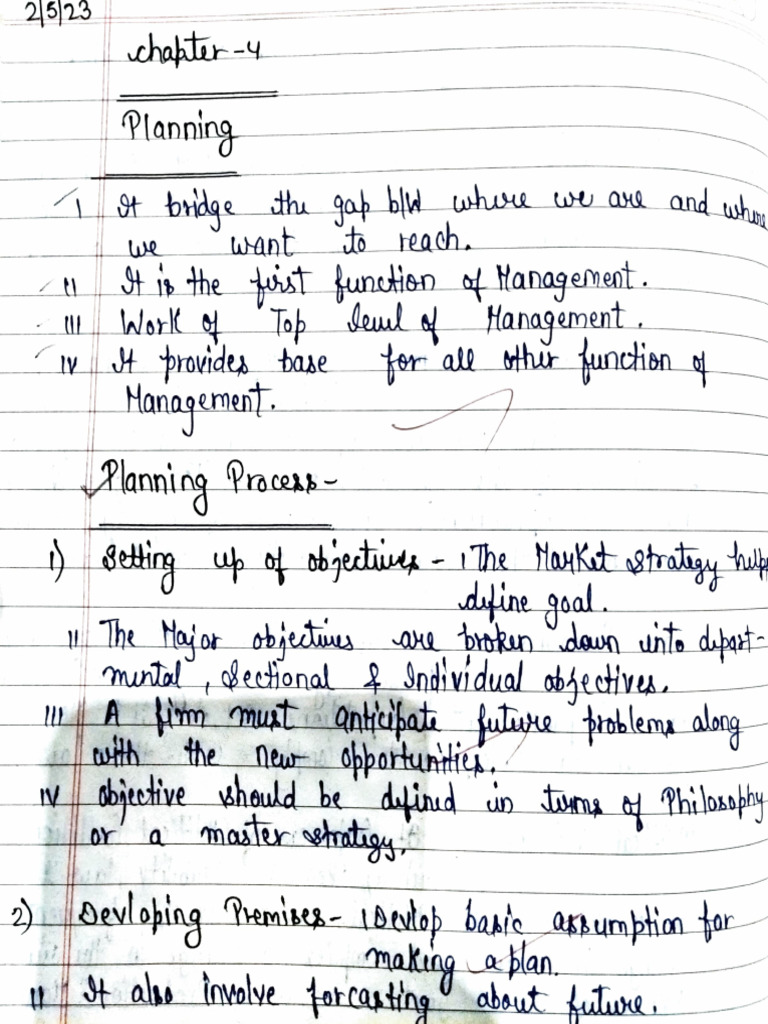 2/5/23
chapter-4
Planning
I It bridge the gap b/w where we are and where
we want to reach.
II It is the first function of Management.
III Work of Top level of Management.
IV It provides base for all other function of
Management.
Planning Process-
1) Setting up of objectives - I The Market strategy help
define goal.
II The Major objectives are broken down into depart-
mental, Sectional & Individual objectives.
III A firm must anticipate future problems along
with the new opportunities.
IV objective should be defined in terms of Philosophy
or a master strategy.
2) Devloping Premises- I Devlop basic assumption for
making a plan.
II It also involve forcasting about future.